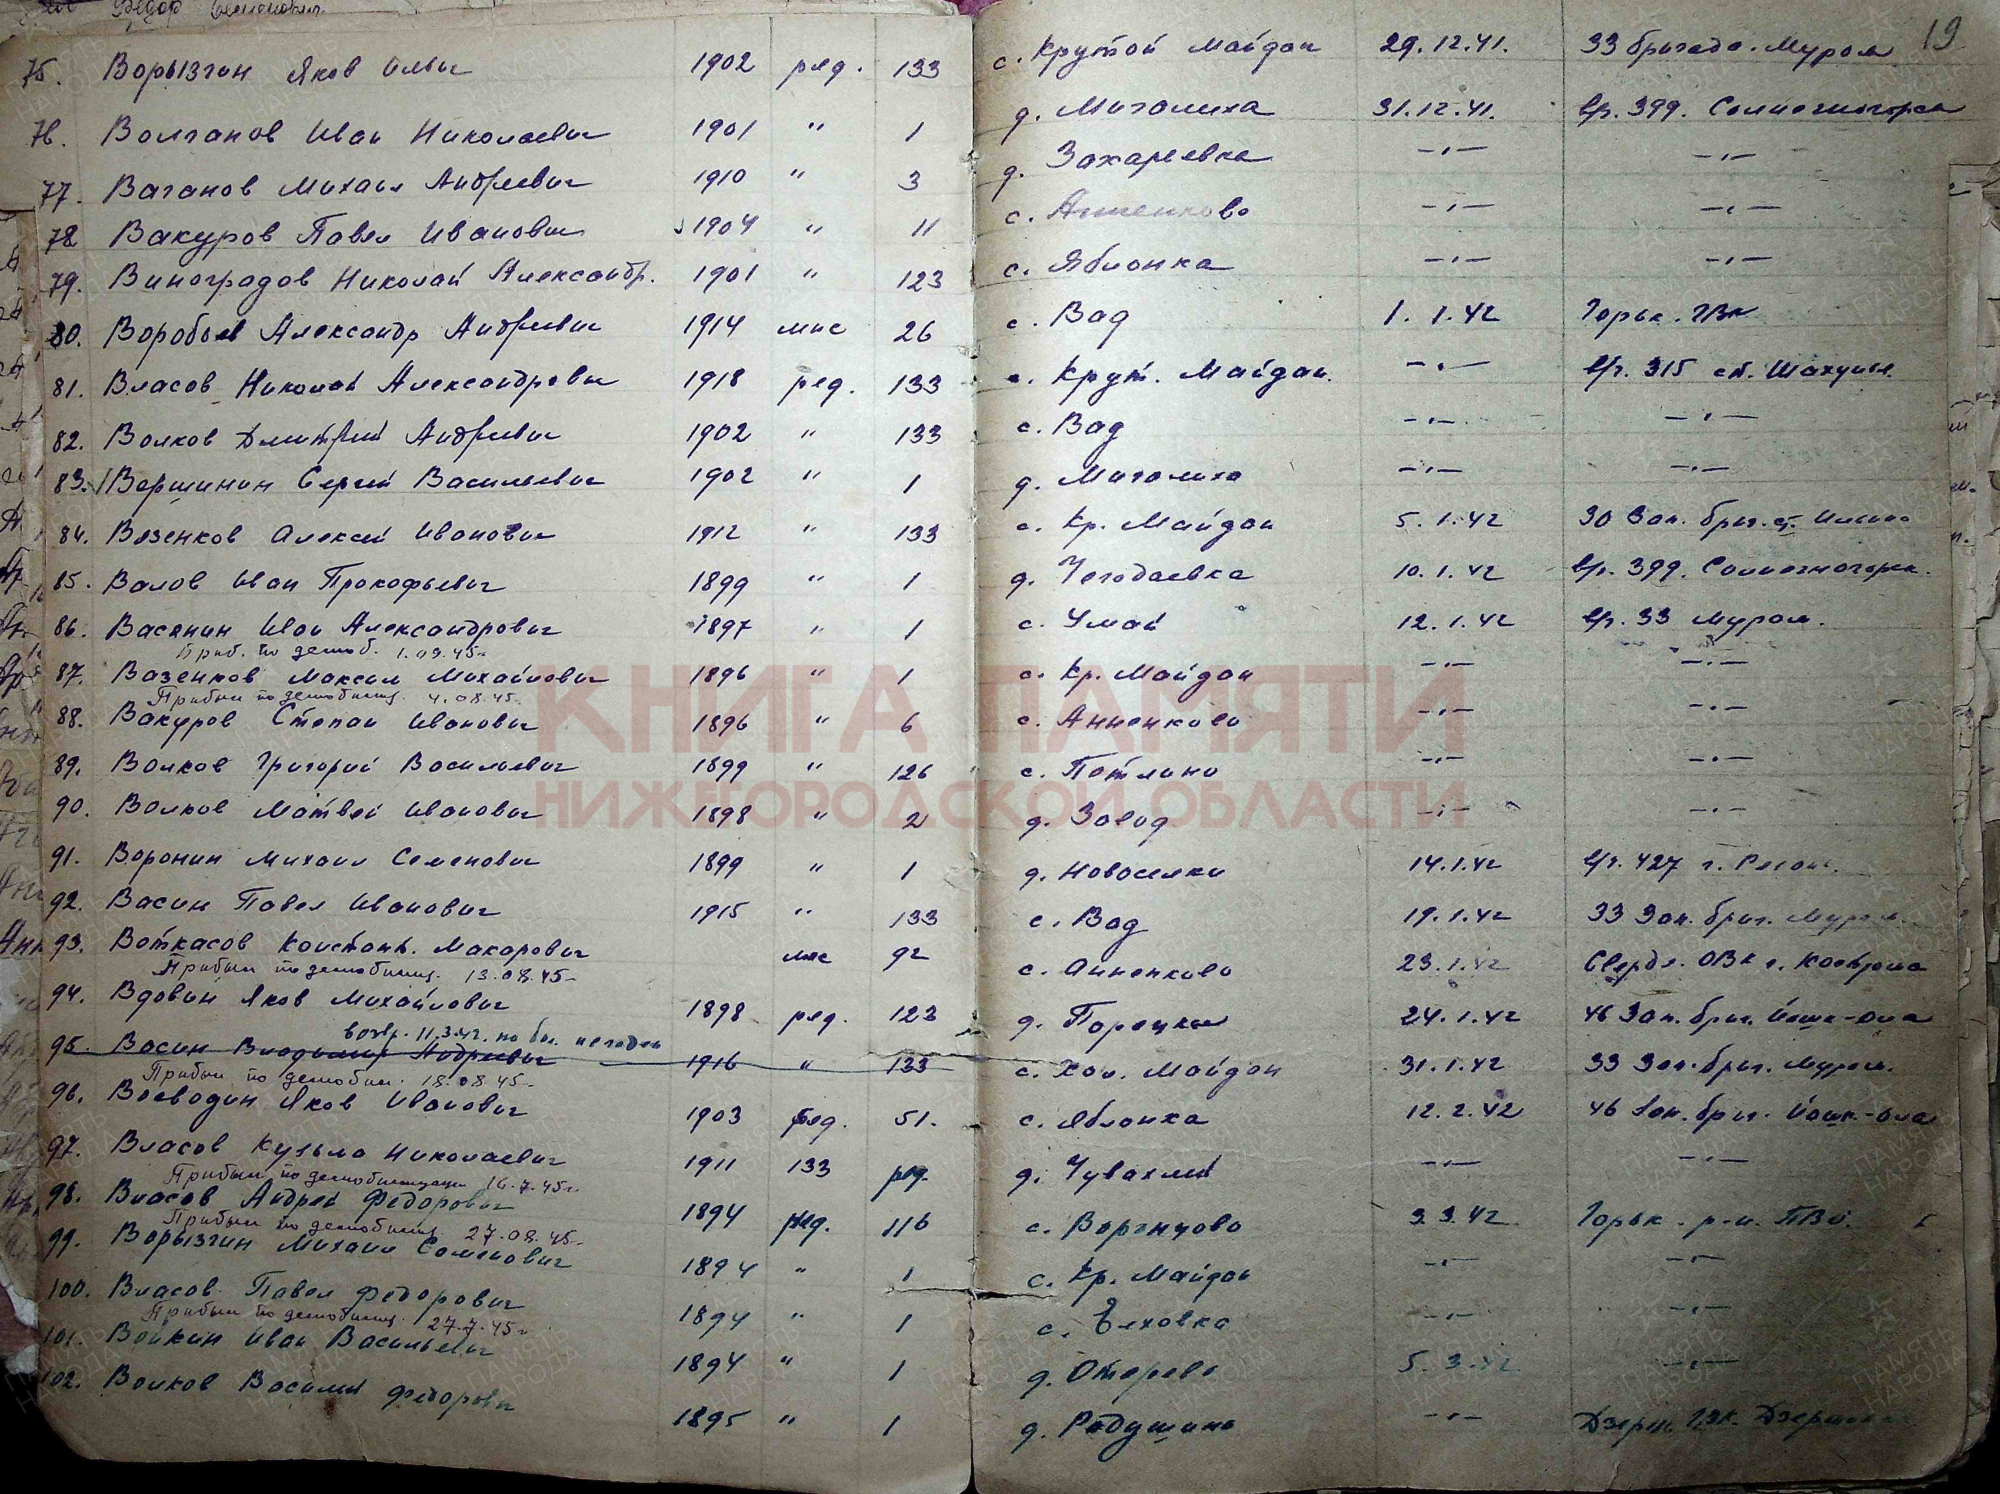 19
75. Ворызгин Яков Ильич 1902 ряд. 133 с. Крутой Майдан 29.12.41. 33 бригада. Муром
76. Волганов Иван Николаевич 1901 " 1 д. Миголиха 31.12.41. в/ч. 399. Солнечногорск
77. Ваганов Михаил Андреевич 1910 " 3 д. Захаревка -"- -"-
78 Вакуров Павел Иванович 1904 " 11 с. Анненково -"- -"-
79. Виноградов Николай Александр. 1901 " 123 с. Яблонка -"- -"-
80. Воробьев Александр Андреевич 1914 млс 26 с. Вад 1.1.42 Горьк. ГВК
81. Власов Николай Александрович 1918 ряд. 133 с. Крут. Майдан. -"- в/ч. 315 ст. Шахунья
82. Волков Дмитрий Андреевич 1902 " 133 с. Вад -"- -"-
83. Вершинин Сергей Васильевич 1902 " 1 д. Миголиха -"- -"-
84. Вязенков Алексей Иванович 1912 " 133 с. Кр. Майдан 5.1.42 30 Зап. бриг. ст.
85. Валов Иван Прокофьевич 1899 " 1 д. Чегодаевка 10.1.42 в/ч. 399. Солнечногорск.
86. Васянин Иван Александрович 1897 " 1 с. Умай 12.1.42 в/ч. 33 Муром.
Приб. по демоб. 1.09.45г
87. Вазенков Максим Михайлович 1896 " 1 с. Кр. Майдан -"- -"-
Прибыл по демобилиз. 4.08.45
88. Вакуров Степан Иванович 1896 " 6 с. Анненково -"- -"-
89. Волков Григорий Васильевич 1899 " 126 с. Потлино -"- -"-
90. Волков Матвей Иванович 1898 " 2 д. Завод -"- -"-
91. Воронин Михаил Семенович 1899 " 1 д. Новоселки 14.1.42 в/ч. 427
92. Васин Павел Иванович 1915 " 133 с. Вад 19.1.42 33 Зап. бриг. Муром.
93. Воткасов Констант. Макарович млс 92 с. Анненково 23.1.42 Свердл. ОВК г. Кострома
Прибыл по демобилиз. 13.08.45г
94. Вдовин Яков Михайлович 1898 ряд. 123 д. Порецкая 24.1.42 46 Зап. бриг. Йошк-Ола
возвр. 11.3.42. по бол. негоден
95. Васин Владимир Андреевич 1916 " 133 с. Хол. Майдан 31.1.42 33 Зап. бриг. Муром.
Прибыл по демобил. 18.08.45г
96. Воеводин Яков Иванович 1903 ряд. 51. с. Яблонка 12.2.42 46 Зап. бриг. Йошк-Ола
97. Власов Кузьма Николаевич 1911 133 ряд. д. Чувахлей -"- -"-
Прибыл по демобилизации 16.7.45г.
98. Власов Андрей Федорович 1894 ряд. 116 с. Воргицово 3.3.42 Горьк. р-н.
Прибыл по демобилиз. 27.08.45г
99. Ворызгин Михаил Семенович 1894 " 1 с. Кр. Майдан -"- -"-
100. Власов Павел Федорович 1894 " 1 с. Елховка -"- -"-
Прибыл по демобилиз. 27.7.45г
101. Войкин Иван Васильевич 1894 " 1 д. Отерево 5.3.42 -"-
102. Волков Василий Федорович 1895 " 1 д. Радушино -"- Дзерж. ГВК. Дзержинск
КНИГА ПАМЯТИ
НИЖЕГОРОДСКОЙ ОБЛАСТИ